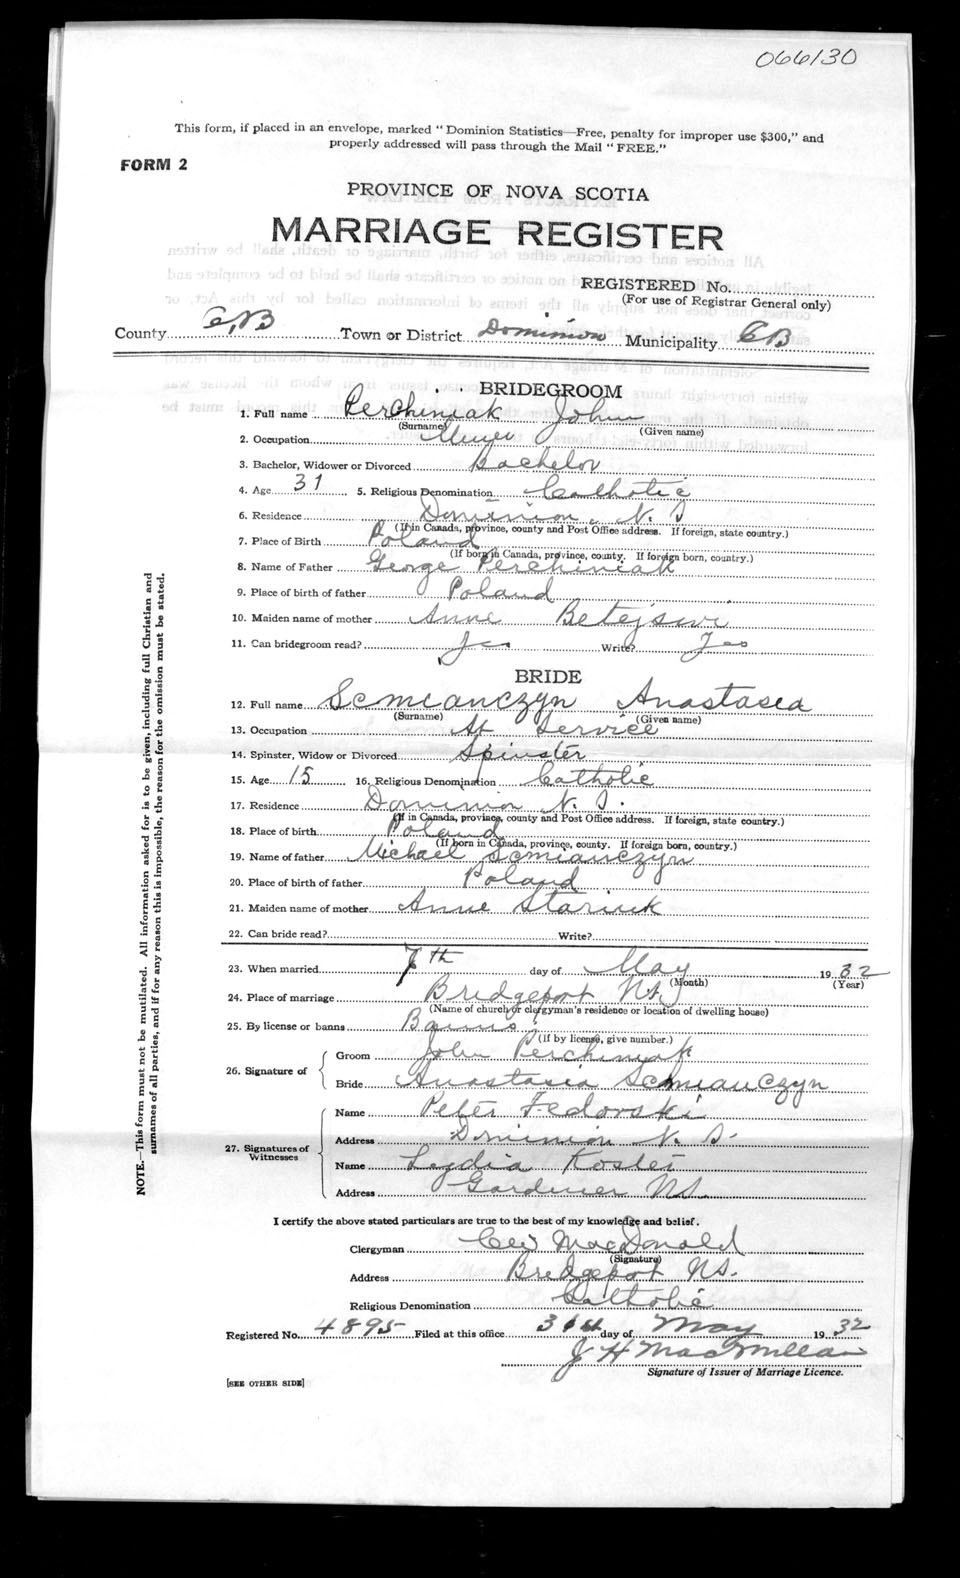 066130
This form, if placed in an envelope, marked "Dominion Statistics—Free, penalty for improper use $300," and
properly addressed will pass through the Mail "FREE."
FORM 2
PROVINCE OF NOVA SCOTIA
MARRIAGE REGISTER
REGISTERED No.
(For use of Registrar General only)
County C,B Town or District Dominion Municipality CB
BRIDEGROOM
1. Full name Perchiniak John
(Surname) (Given name)
2. Occupation Miner
3. Bachelor, Widower or Divorced Bachelor
4. Age 31 5. Religious Denomination Catholic
6. Residence Dominion, N. S
(If in Canada, province, county and Post Office address. If foreign, state country.)
7. Place of Birth Poland
(If born in Canada, province, county. If foreign born, country.)
8. Name of Father George Perchiniak
9. Place of birth of father Poland
10. Maiden name of mother Anne
11. Can bridegroom read? Yes Write? Yes
BRIDE
12. Full name Semianczyn Anastasea
(Surname) (Given name)
13. Occupation At Service
14. Spinster, Widow or Divorced Spinster
15. Age 15 16. Religious Denomination Catholic
17. Residence Dominion N. S.
(If in Canada, province, county and Post Office address. If foreign, state country.)
18. Place of birth Poland
(If born in Canada, province, county. If foreign born, country.)
19. Name of father Michael Semianczyn
20. Place of birth of father Poland
21. Maiden name of mother Anne Stariuk
22. Can bride read? Write?
23. When married 7th day of May 1932
(Month) (Year)
24. Place of marriage Bridgeport NS
(Name of church or clergyman's residence or location of dwelling house)
25. By license or banns Banns
(If by license, give number.)
26. Signature of
Groom John Perchiniak
Bride Anastasia Semianczyn
27. Signatures of Witnesses
Name Peter Fedorski
Address Dominion N. S.
Name Lydia Koslei
Address Gardiner NS.
I certify the above stated particulars are true to the best of my knowledge and belief.
Clergyman MacDonald
(Signature)
Address Bridgeport NS.
Religious Denomination Catholic
Registered No. 4895 Filed at this office 31st day of May 1932
J H MacMillan
Signature of Issuer of Marriage Licence.
[SEE OTHER SIDE]
NOTE.—This form must not be mutilated. All information asked for is to be given, including full Christian and
surnames of all parties, and if for any reason this is impossible, the reason for the omission must be stated.